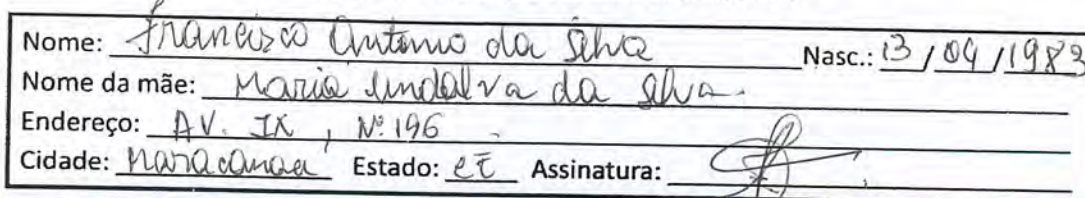 Nome: Francisco Antonio da Silva Nasc.: 13/04/1983
Nome da mãe: Maria Lindalva da Silva.
Endereço: AV. IX, Nº 196
Cidade: Maracanaú Estado: CE Assinatura: